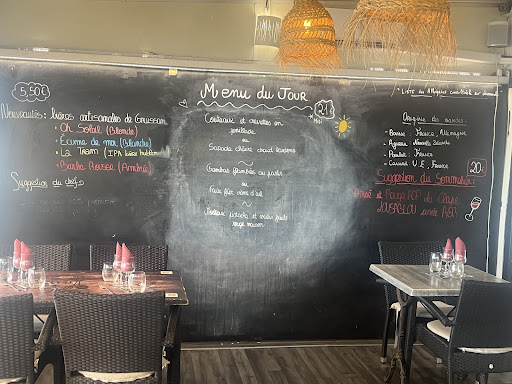 5,50€
Nouveautés: bières artisanales de Gruissan
• Oh Soleil (Blonde)
• Écume de mer (Blanche)
• La Tram (IPA bière houblon
• Barba Rousse (Ambrée)
Suggestion du chef:
Menu du Jour
21€
Couteaux et crevettes en
persillade
ou
Salade César chaud
~
Gambas flambées au pastis
ou
Faux filet
~
Moelleux pistache et
rouge maison
* Liste des Allergènes consultable sur demande
Origine des viandes:
- Bavine: France, Allemagne
- Agneau: Nouvelle Zélande
- Poulet: France
- Canard: U.E, France
20€
Suggestion du Sommelier:
et Rouge AOP La Clape